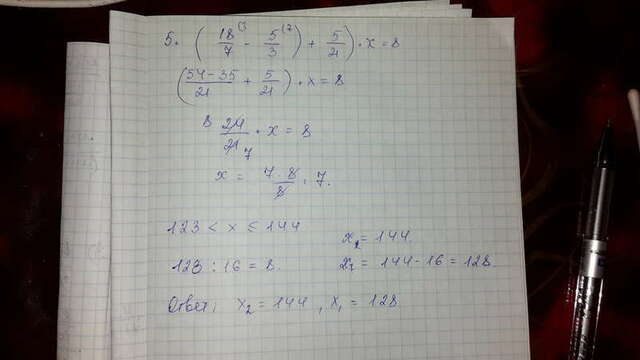 5. ( 18/7 (3 - 5/3 (7 ) + 5/21 ) · x = 8
( 54-35/21 + 5/21 ) · x = 8
8 24/21 7 · x = 8
x = 7·8/8 = 7.
123 < x ≤ 144
x₂ = 144.
128 : 16 = 8.
x₁ = 144-16 = 128.
Ответ: x₂ = 144, x₁ = 128